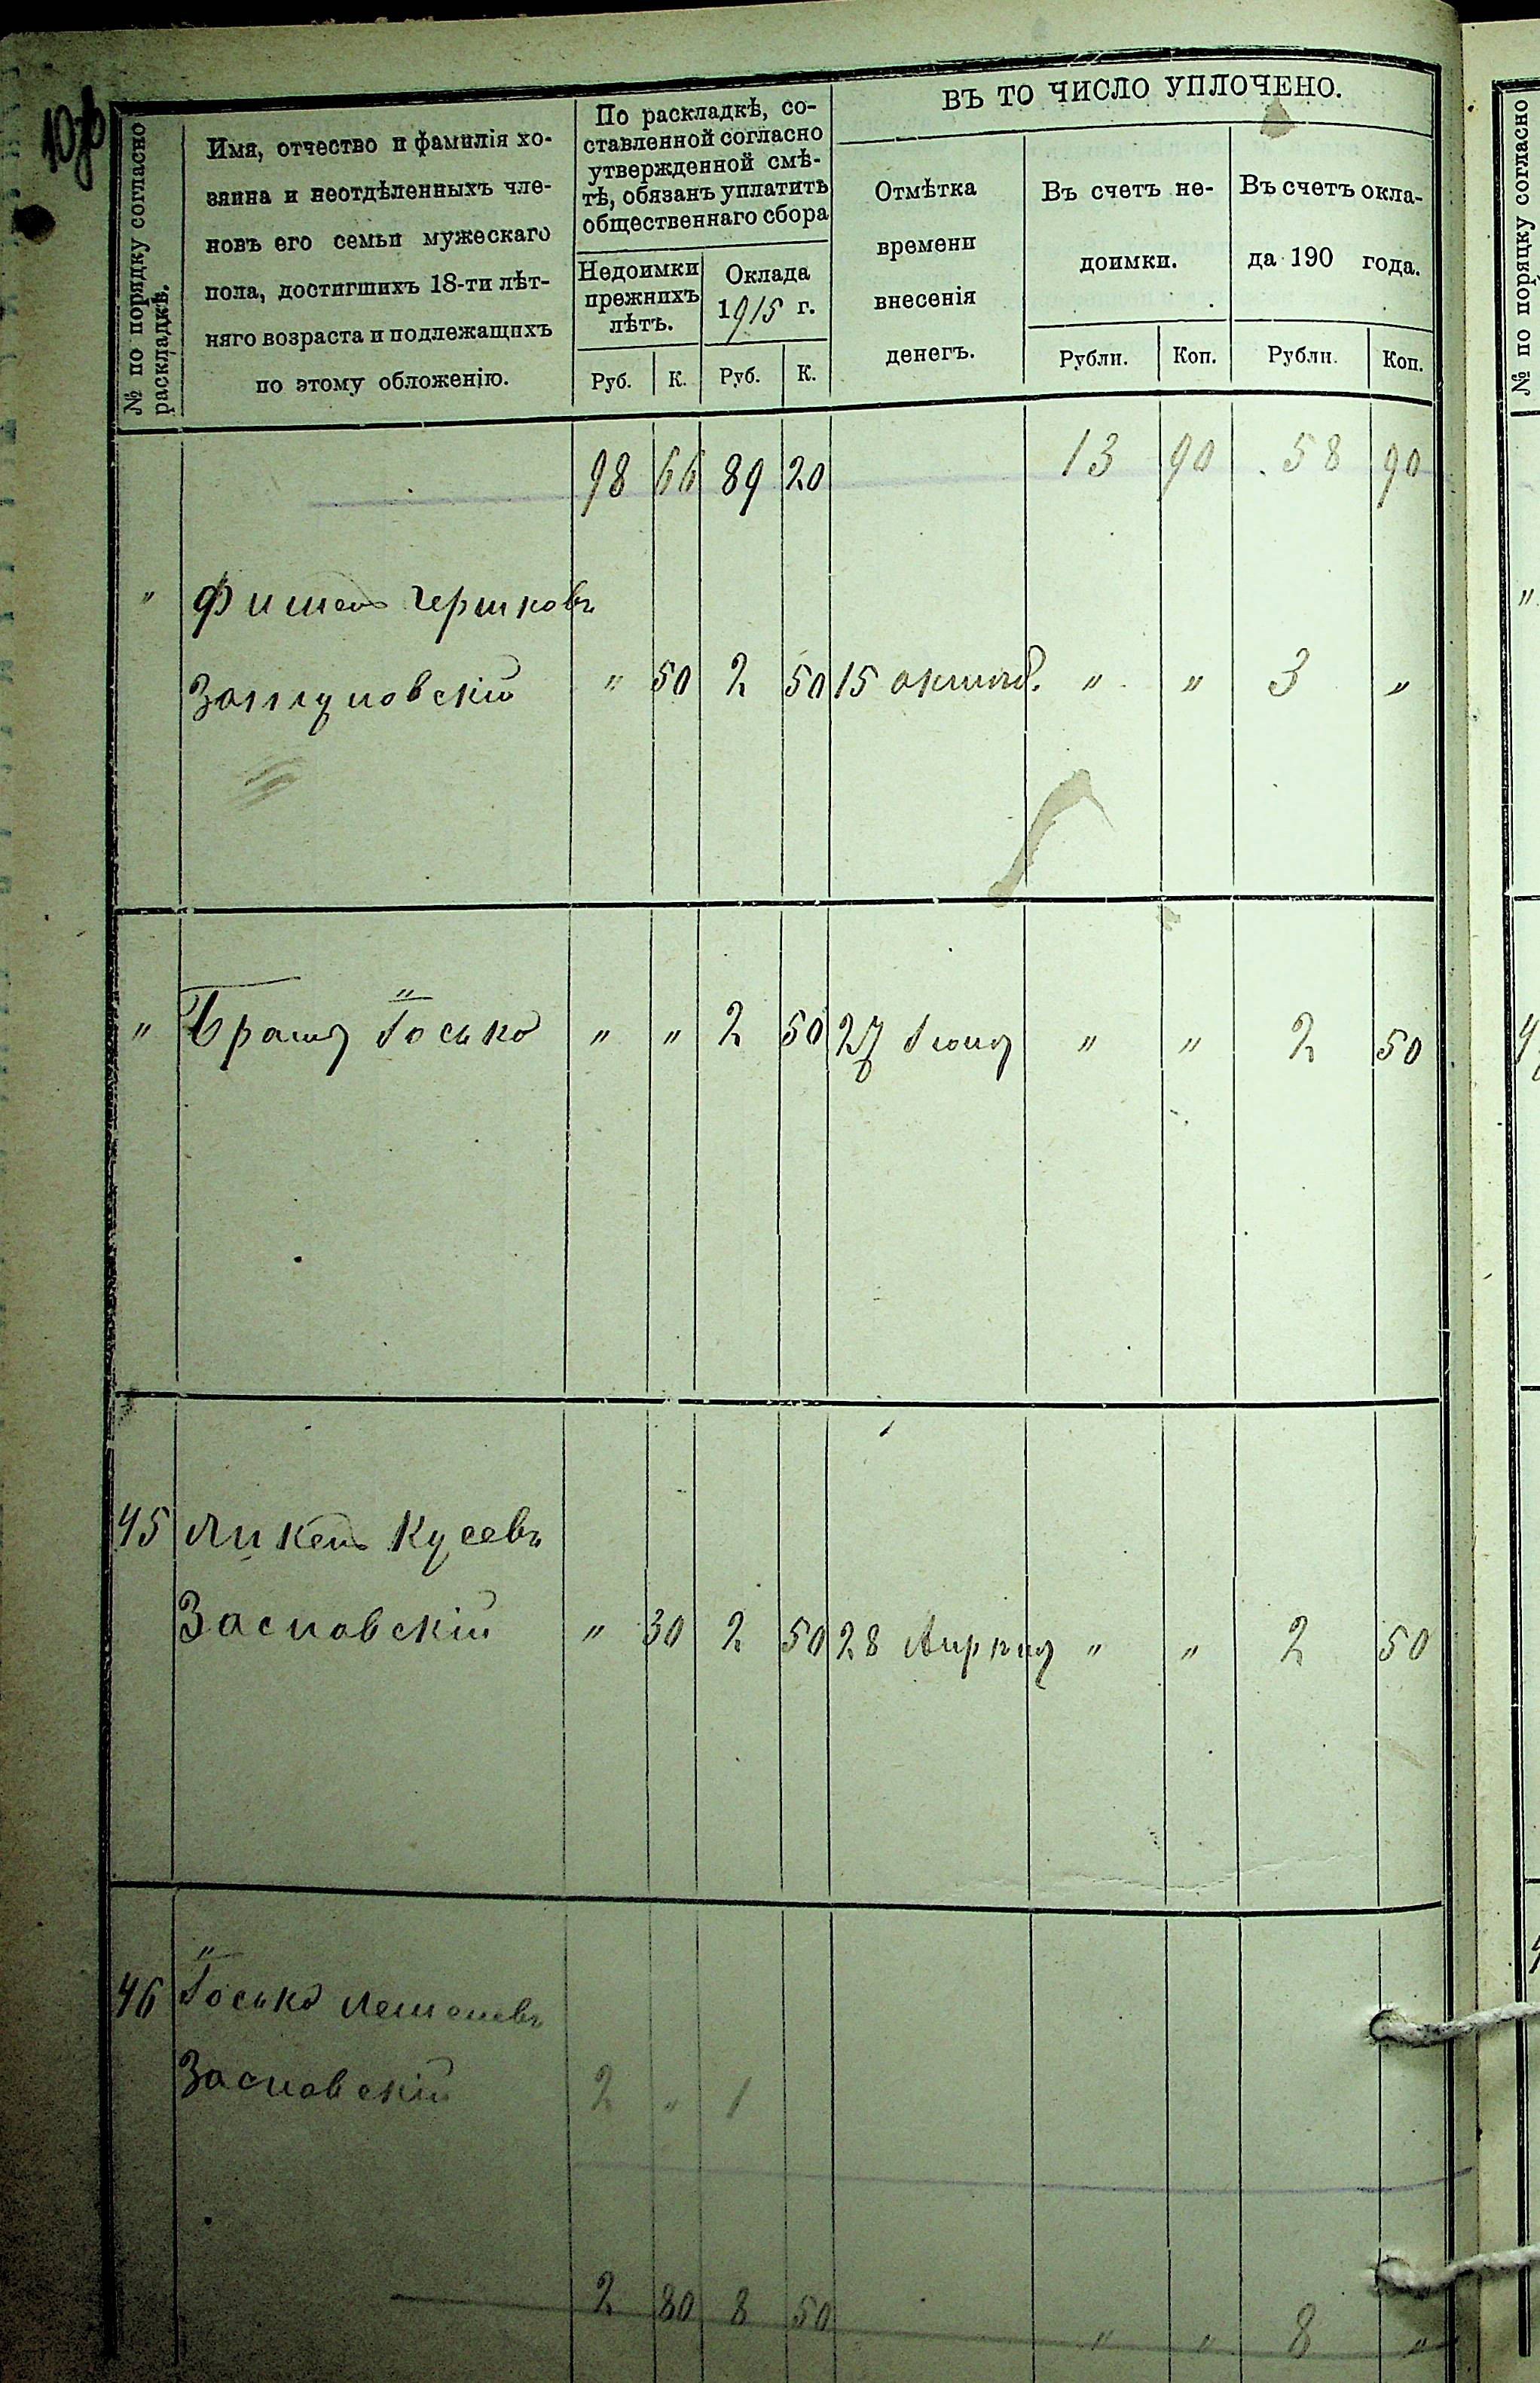 10 об
ВЪ ТО ЧИСЛО УПЛОЧЕНО.
№ по порядку согласно раскладкѣ.
Имя, отчество и фамилія хо-
зяина и неотдѣленныхъ чле-
новъ его семьи мужескаго
пола, достигшихъ 18-ти лѣт-
няго возраста и подлежащихъ
по этому обложенію.
По раскладкѣ, со-
ставленной согласно
утвержденной смѣ-
тѣ, обязанъ уплатить
общественнаго сбора
Недоимки
прежнихъ
лѣтъ.
Руб. К.
Оклада
1915 г.
Руб. К.
Отмѣтка
времени
внесенія
денегъ.
Въ счетъ не-
доимки.
Рубли. Коп.
Въ счетъ окла-
да 190 года.
Рубли. Коп.
98 66 89 20 13 90 58 90
" Фишель Гершковъ
" 50 2 50 15 октяб. " " 3 "
" Братъ Іосько " " 2 50 27 Іюня " " 2 50
45 Лукевъ
Засновскій " 30 2 50 28 Апрѣля " " 2 50
46 Іосько
Засновскій 2 " 1
2 80 8 50 " " 8 "
№ по порядку согласно